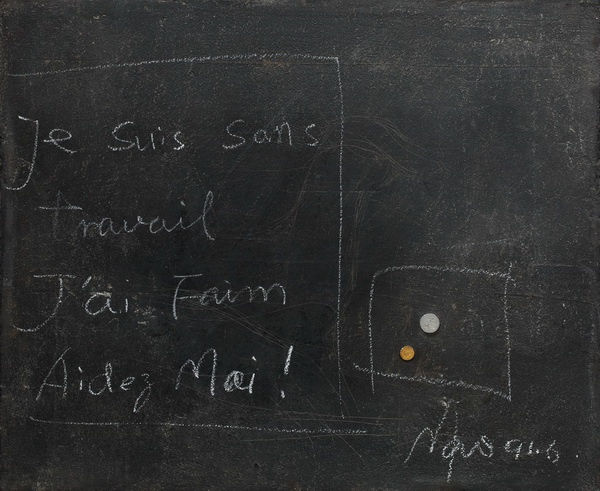 Je suis sans
travail
J'ai Faim
Aidez Moi !
94.6.